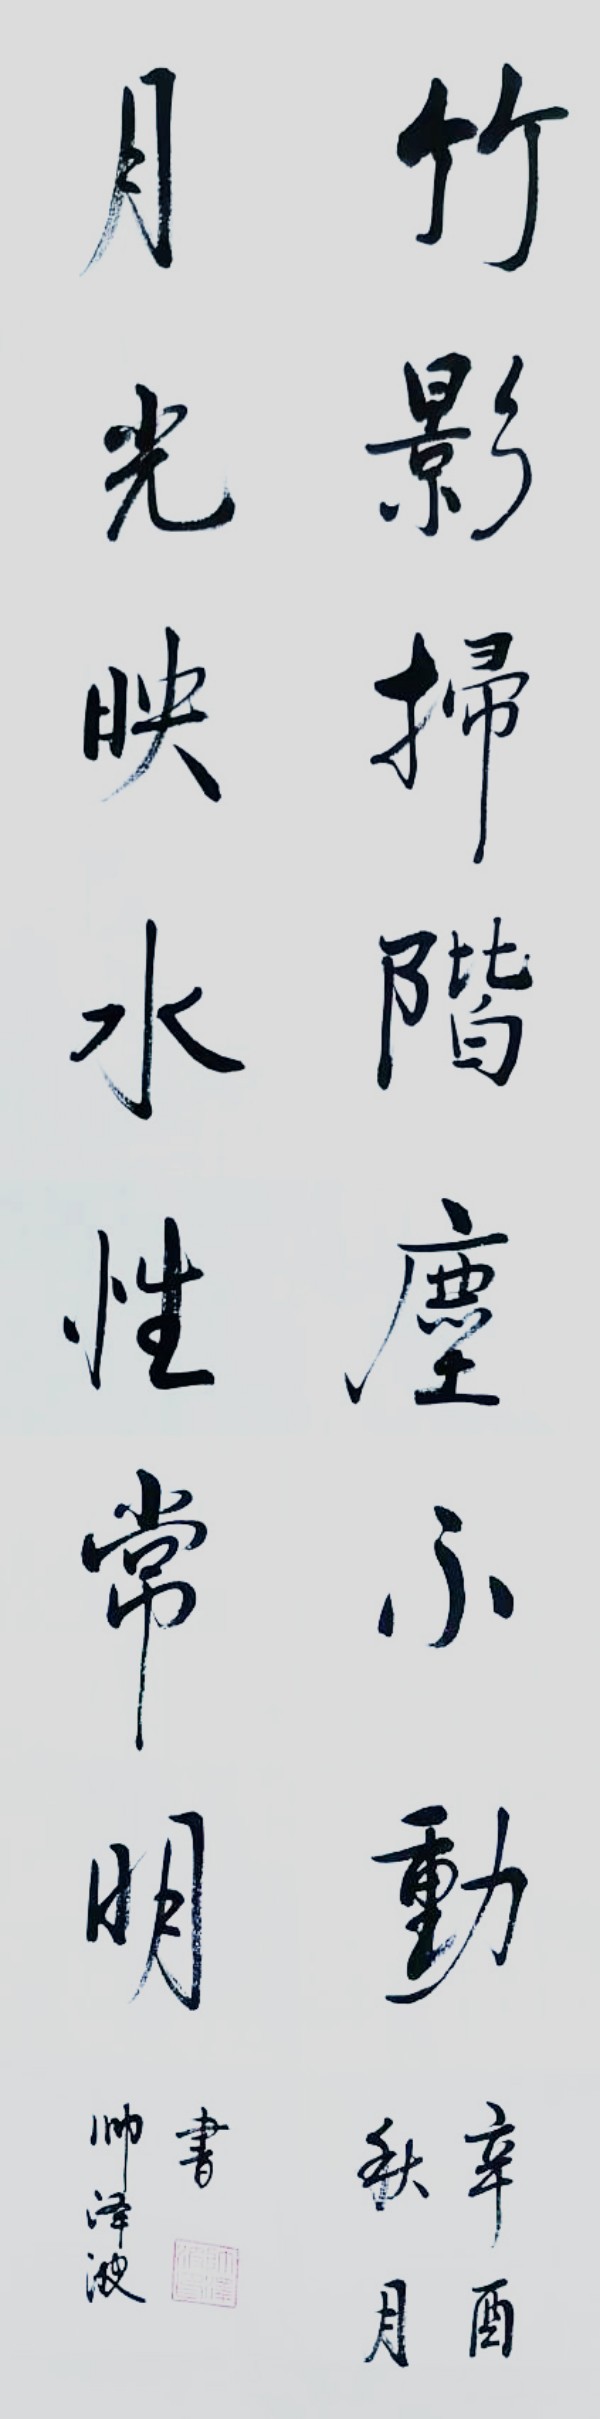 竹影掃階塵不動
辛酉
秋月
月光映水性常明
書
帅泽波